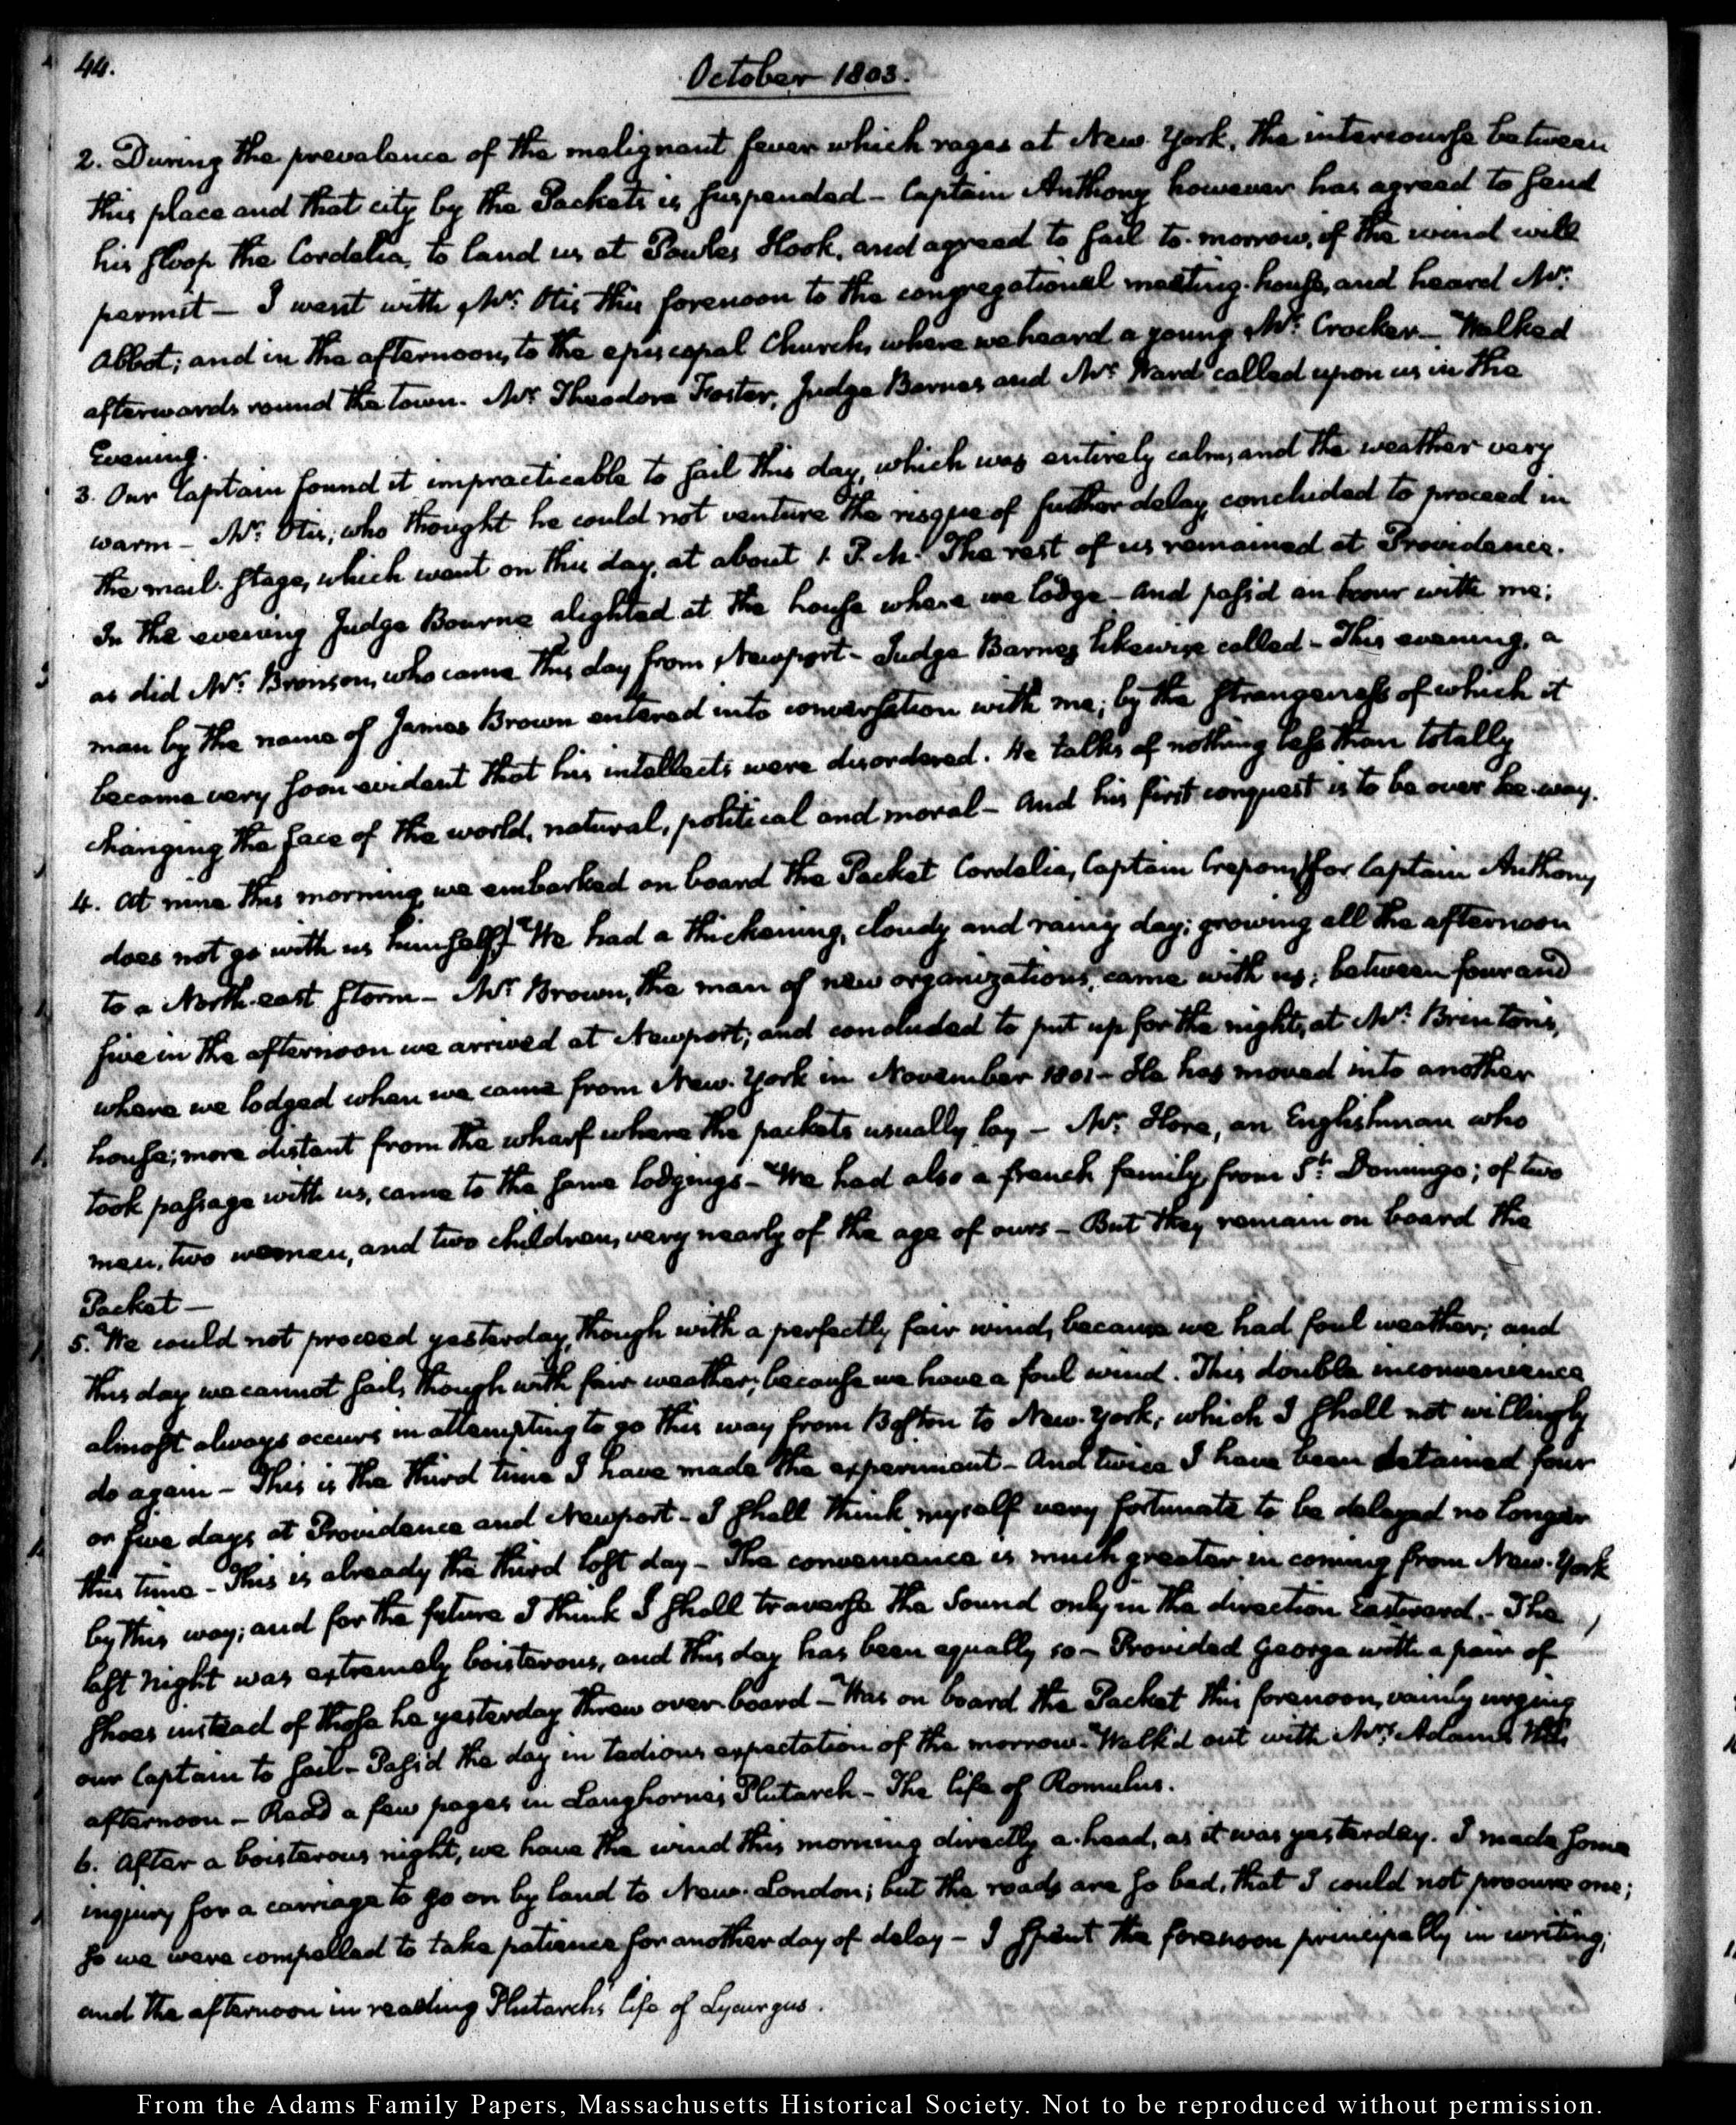 44.
October 1803.
2. During the prevalence of the malignant fever which rages at New York, the intercourse between
this place and that city by the Packets is suspended – Captain Anthony however has agreed to send
his sloop the Cordelia, to land us at Powles Hook, and agreed to sail to-morrow, if the wind will
permit – I went with Mr. Otis this forenoon to the congregational meeting-house, and heard Mr.
Abbot; and in the afternoon, to the episcopal Church, where we heard a young Mr. Crocker – Walked
afterwards round the town. Mr. Theodore Foster, Judge Barnes and Mr. Ward called upon us in the
Evening.
3. Our Captain found it impracticable to sail this day, which was entirely calm, and the weather very
warm – Mr. Otis, who thought he could not venture the risque of further delay, concluded to proceed in
the mail-stage, which went on this day, at about 1. P.M. The rest of us remained at Providence.
In the evening Judge Bourne alighted at the house where we lodge – And pass'd an hour with me;
as did Mr. Bronson, who came this day from Newport – Judge Barnes likewise called – This evening, a
man by the name of James Brown entered into conversation with me; by the strangeness of which it
became very soon evident that his intellects were disordered. He talks of nothing less than totally
changing the face of the world, natural, political and moral – And his first conquest is to be over
4. At nine this morning we embarked on board the Packet Cordelia, Captain Crepon, (for Captain Anthony
does not go with us himself) We had a thickening, cloudy and rainy day; growing all the afternoon
to a North-east storm – Mr. Brown, the man of new organizations, came with us; between four and
five in the afternoon we arrived at Newport; and concluded to put up for the night, at Mr. Brinton's,
where we lodged when we came from New-York in November 1801 – He has moved into another
house; more distant from the wharf where the packets usually lay – Mr. Hore, an Englishman who
took passage with us, came to the same lodgings – We had also a french family from St. Domingo; of two
men, two women, and two children, very nearly of the age of ours – But they remain on board the
Packet –
5. We could not proceed yesterday, though with a perfectly fair wind, because we had foul weather; and
this day we cannot sail, though with fair weather, because we have a foul wind. This double inconvenience
almost always occurs in attempting to go this way from Boston to New-York, which I shall not willingly
do again – This is the third time I have made the experiment – And twice I have been detained four
or five days at Providence and Newport – I shall think myself very fortunate to be delayed no longer
this time – This is already the third lost day – The convenience is much greater in coming from New-York
by this way; and for the future I think I shall traverse the Sound only in the direction Eastward. – The
last night was extremely boisterous, and this day has been equally so – Provided George with a pair of
shoes instead of those he yesterday threw over-board – Was on board the Packet this forenoon, vainly urging
our Captain to sail – Pass'd the day in tedious expectation of the morrow – Walk'd out with Mrs. Adams this
afternoon – Read a few pages in Langhorne's Plutarch – The life of Romulus.
6. After a boisterous night, we have the wind this morning directly a-head, as it was yesterday. I made some
inquiry for a carriage to go on by land to New-London; but the roads are so bad, that I could not procure one;
so we were compelled to take patience for another day of delay – I spent the forenoon principally in writing;
and the afternoon in reading Plutarch's life of Lycurgus.
From the Adams Family Papers, Massachusetts Historical Society. Not to be reproduced without permission.